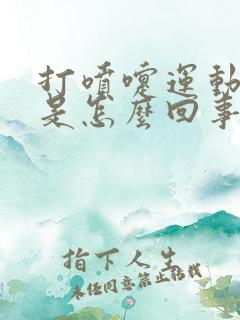 打噴嚏運動
是怎麼回事
指下人生
未經同意禁止轉載